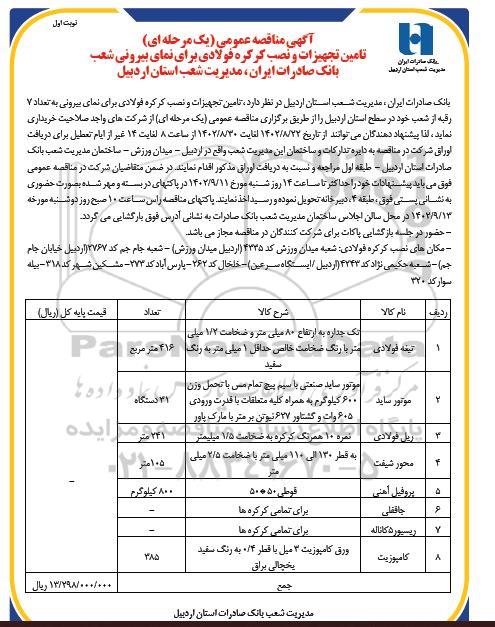 نوبت اول
بانک صادرات ایران
مدیریت شعب استان اردبیل
آگهی مناقصه عمومی (یک مرحله ای)
تامین تجهیزات و نصب کرکره فولادی برای نمای بیرونی شعب
بانک صادرات ایران ، مدیریت شعب استان اردبیل
بانک صادرات ایران ، مدیریت شعب استان اردبیل در نظر دارد ، تامین تجهیزات و نصب کرکره فولادی برای نمای بیرونی به تعداد ۷
رقبه از شعب خود در سطح استان اردبیل را از طریق برگزاری مناقصه عمومی (یک مرحله ای) از شرکت های واجد صلاحیت خریداری
نماید ، لذا پیشنهاد دهندگان می توانند از تاریخ ۱۴۰۲/۸/۲۲ لغایت ۱۴۰۲/۸/۳۰ از ساعت ۸ لغایت ۱۴ غیر از ایام تعطیل برای دریافت
اوراق شرکت در مناقصه به دایره تدارکات و ساختمان این مدیریت شعب واقع در اردبیل – میدان ورزش – ساختمان مدیریت شعب بانک
صادرات استان اردبیل – طبقه اول مراجعه و نسبت به دریافت اوراق مذکور اقدام نمایند. در ضمن متقاضیان شرکت در مناقصه عمومی
فوق می باید پیشنهادات خود را حداکثر تا ساعت ۱۴ روز شنبه مورخ ۱۴۰۲/۹/۱۱ در پاکتهای در بسته و مهر شده بصورت حضوری
به نشانی پستی فوق ، طبقه ۴ ، دبیرخانه تحویل نموده و رسید اخذ نمایند. پاکتهای مناقصه راس ساعت ۱۰ صبح روز دوشنبه مورخه
۱۴۰۲/۹/۱۳ در محل سالن اجلاس ساختمان مدیریت شعب بانک صادرات به نشانی آدرس فوق بازگشایی می گردد.
– حضور در جلسه بازگشایی پاکات برای شرکت کنندگان در مناقصه مجاز می باشد.
– مکان های نصب کرکره فولادی: شعبه میدان ورزش کد ۴۳۳۵ (اردبیل میدان ورزش) – شعبه جام جم کد ۲۷۶۷(اردبیل خیابان جام
جم) – شعبه حکیمی نژاد کد ۴۲۴۳ (اردبیل / ایستگاه سرعین) – خلخال کد ۲۶۲ – پارس آباد کد ۲۷۳ – مشکین شهر کد ۳۱۸ – بیله
سوار کد ۳۲۰
ردیف نام کالا شرح کالا تعداد قیمت پایه کل (ریال)
۱ تیغه فولادی تک جداره به ارتفاع ۸۰ میلی متر و ضخامت ۱/۲ میلی
متر با رنگ ضخامت خالص حداقل ۱ میلی متر به رنگ
سفید ۴۱۶ متر مربع
۲ موتور ساید موتور ساید صنعتی با سیم پیچ تمام مس با تحمل وزن
۶۰۰ کیلوگرم به همراه کلیه متعلقات با قدرت ورودی
۶۰۵ وات و گشتاور ۶۳۷نیوتن بر متر با مارک پاور ۳۱ دستگاه
۳ ریل فولادی نمره ۱۰ همرنگ کرکره به ضخامت ۱/۵ میلیمتر ۲۴۱ متر
۴ محور شیفت به قطر ۱۳۰ الی ۱۱۰ میلی متر با ضخامت ۲/۵ میلی
متر ۱۰۵متر
۵ پروفیل آهنی قوطی ۵۰*۵۰ ۸۰۰ کیلوگرم
۶ جاقفلی برای تمامی کرکره ها –
۷ ریسیور۵کاناله برای تمامی کرکره ها –
۸ کامپوزیت ورق کامپوزیت ۳ میل با قطر ۰/۴ به رنگ سفید
یخچالی براق ۳۸۵
–
جمع ۱۳/۲۹۸/۰۰۰/۰۰۰ ریال
مدیریت شعب بانک صادرات استان اردبیل
۰۲۱-۸۸۳۴۹۶۷۰-۵